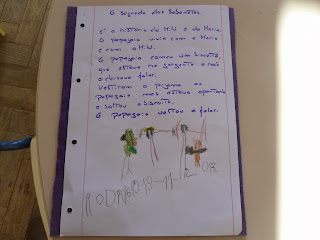 O segredo das Sabonetes.
É a história da Mihi e da Maria.
O papagaio vivia com a Maria
e com a Mihi.
O papagaio comeu um biscoito,
que estava na garganta e não
o deixava falar.
Vestiram o pijama ao
papagaio mas estava apertado
e saltou o biscoito.
O papagaio voltou a falar.
RODRIGO 13-11-12 OB